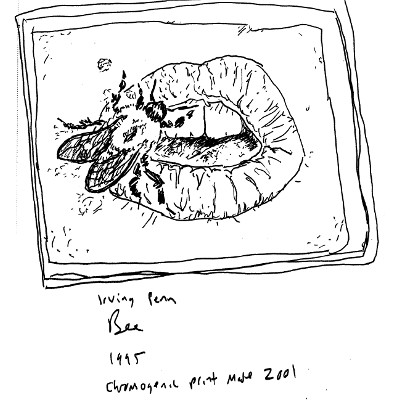 Irving Penn
Bee
1995
Chromogenic print Made 2001